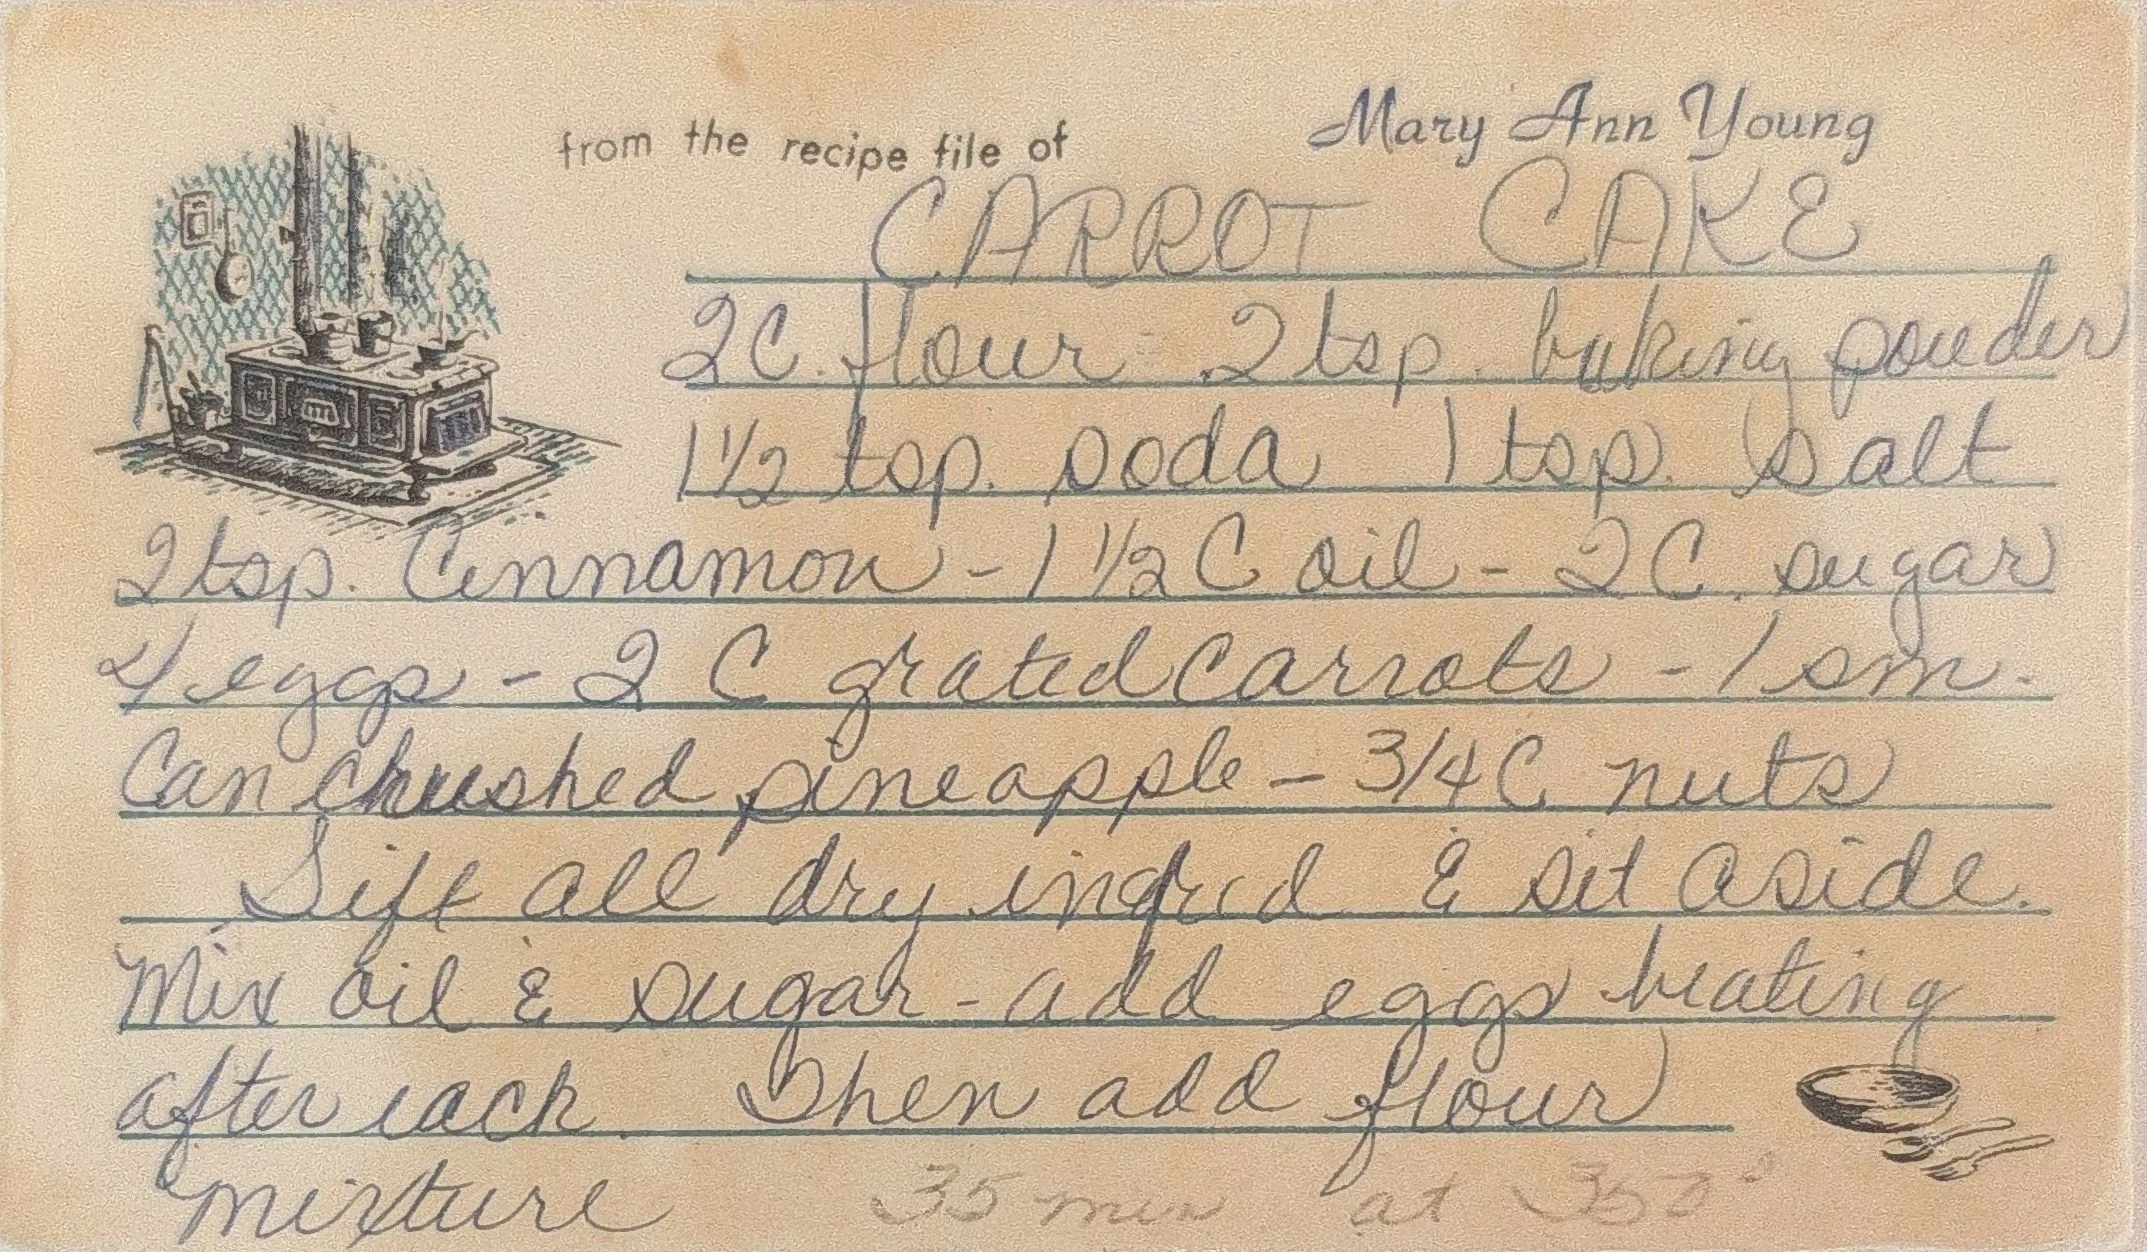 from the recipe file of Mary Ann Young
CARROT CAKE
2C. flour - 2 tsp. baking powder
1 1/2 tsp. soda 1 tsp. salt
2 tsp. Cinnamon - 1 1/2 C oil - 2 C. sugar
4 eggs - 2 C grated carrots - 1 sm.
Can chrushed pineapple - 3/4 C nuts
Sift all dry ingred & sit aside.
Mix oil & sugar - add eggs beating
after each. Then add flour
mixture 35 min at 350°